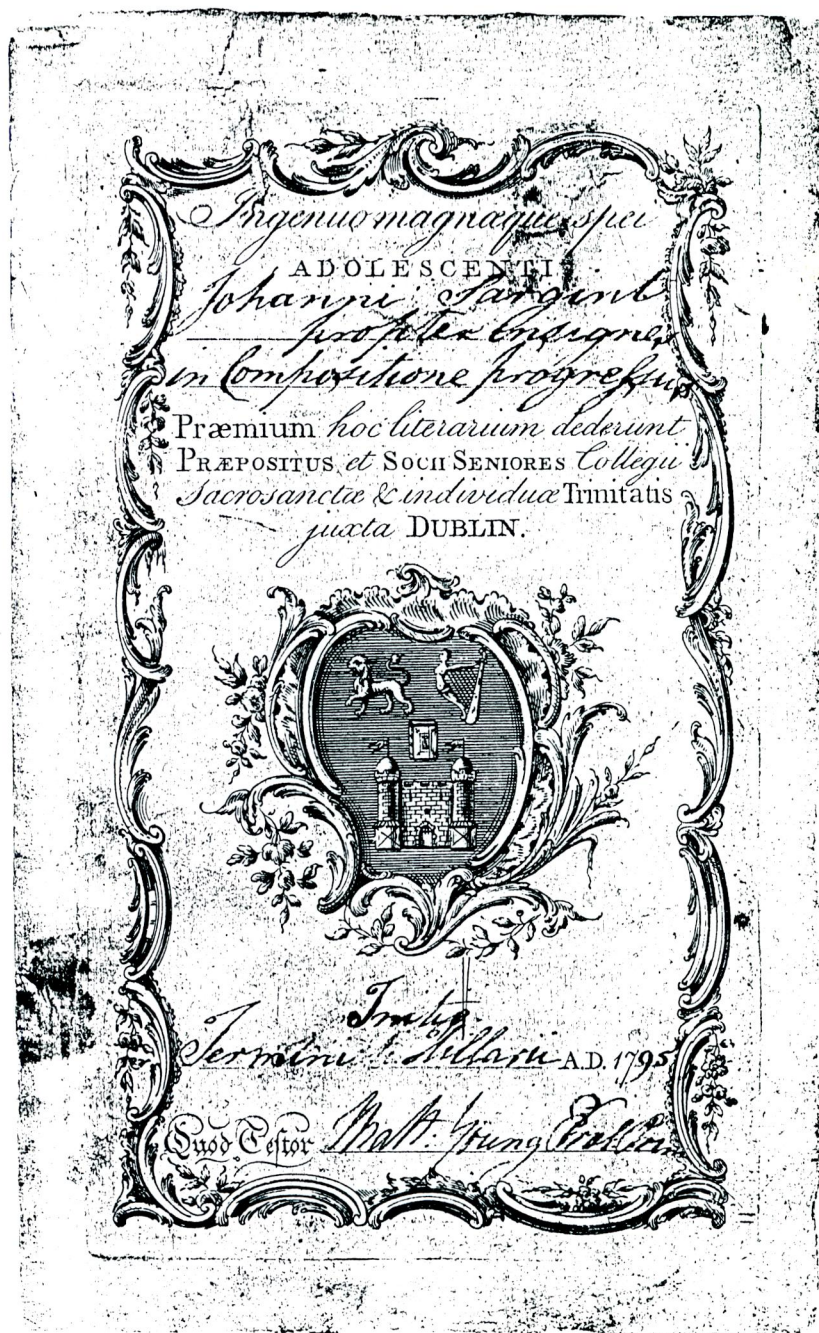 Ingenuo magnæque spei
ADOLESCENTI
Johanni Sargint
propter Insignes
in Compositione progressus
Præmium hoc literarium dederunt
PRÆPOSITUS et SOCII SENIORES Collegii
Sacrosanctæ & individuæ Trinitatis
juxta DUBLIN.
Termini Hillarii A.D. 1795
Quod Testor Matt: Young